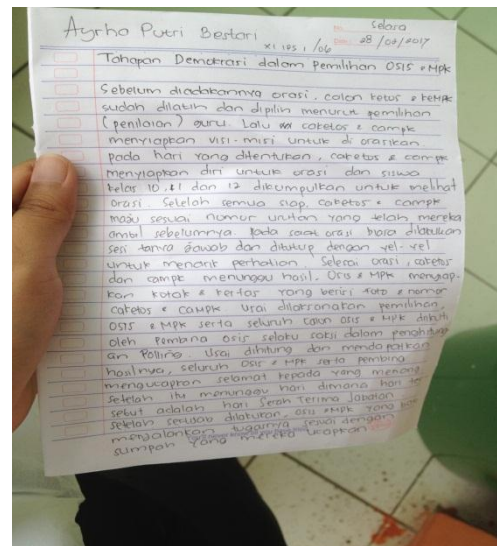 Ayrha Putri Bestari
XI IPS 1 /06
No. selasa
Date. 28 /02/2017
Tahapan Demokrasi dalam Pemilihan OSIS & MPK
Sebelum diadakannya orasi, calon ketos & keMPK
sudah dilatih dan dipilih menurut pemilihan
(penilaian) guru. Lalu caketos & campk
menyiapkan visi-misi untuk di orasikan
pada hari yang ditentukan, caketos & campk
menyiapkan diri untuk orasi dan siswa
kelas 10, 11 dan 12 dikumpulkan untuk melihat
orasi. Setelah semua siap, caketos & campk
maju sesuai nomor urutan yang telah mereka
ambil sebelumnya. Pada saat orasi biasa dilakukan
sesi tanya jawab dan ditutup dengan yel-yel
untuk menarik perhatian. Selesai orasi, caketos
dan campk menunggu hasil. Osis & MPK menyiap-
kan kotak & kertas yang berisi foto & nomor
caketos & camPK Usai dilaksanakan pemilihan,
OSIS & MPK serta seluruh calon osis & MPK diikuti
oleh Pembina osis selaku saksi dalam penghitung
an Polling. Usai dihitung dan mendapatkan
hasilnya, seluruh OSIS & MPK serta pembina
mengucapkan selamat kepada yang menang
setelah itu menunggu hari dimana hari ter
sebut adalah hari Serah Terima Jabatan.
setelah sesudah dilakukan, osis & MPK yang
menjalankan tugasnya sesuai dengan
sumpah yang mereka ucapkan